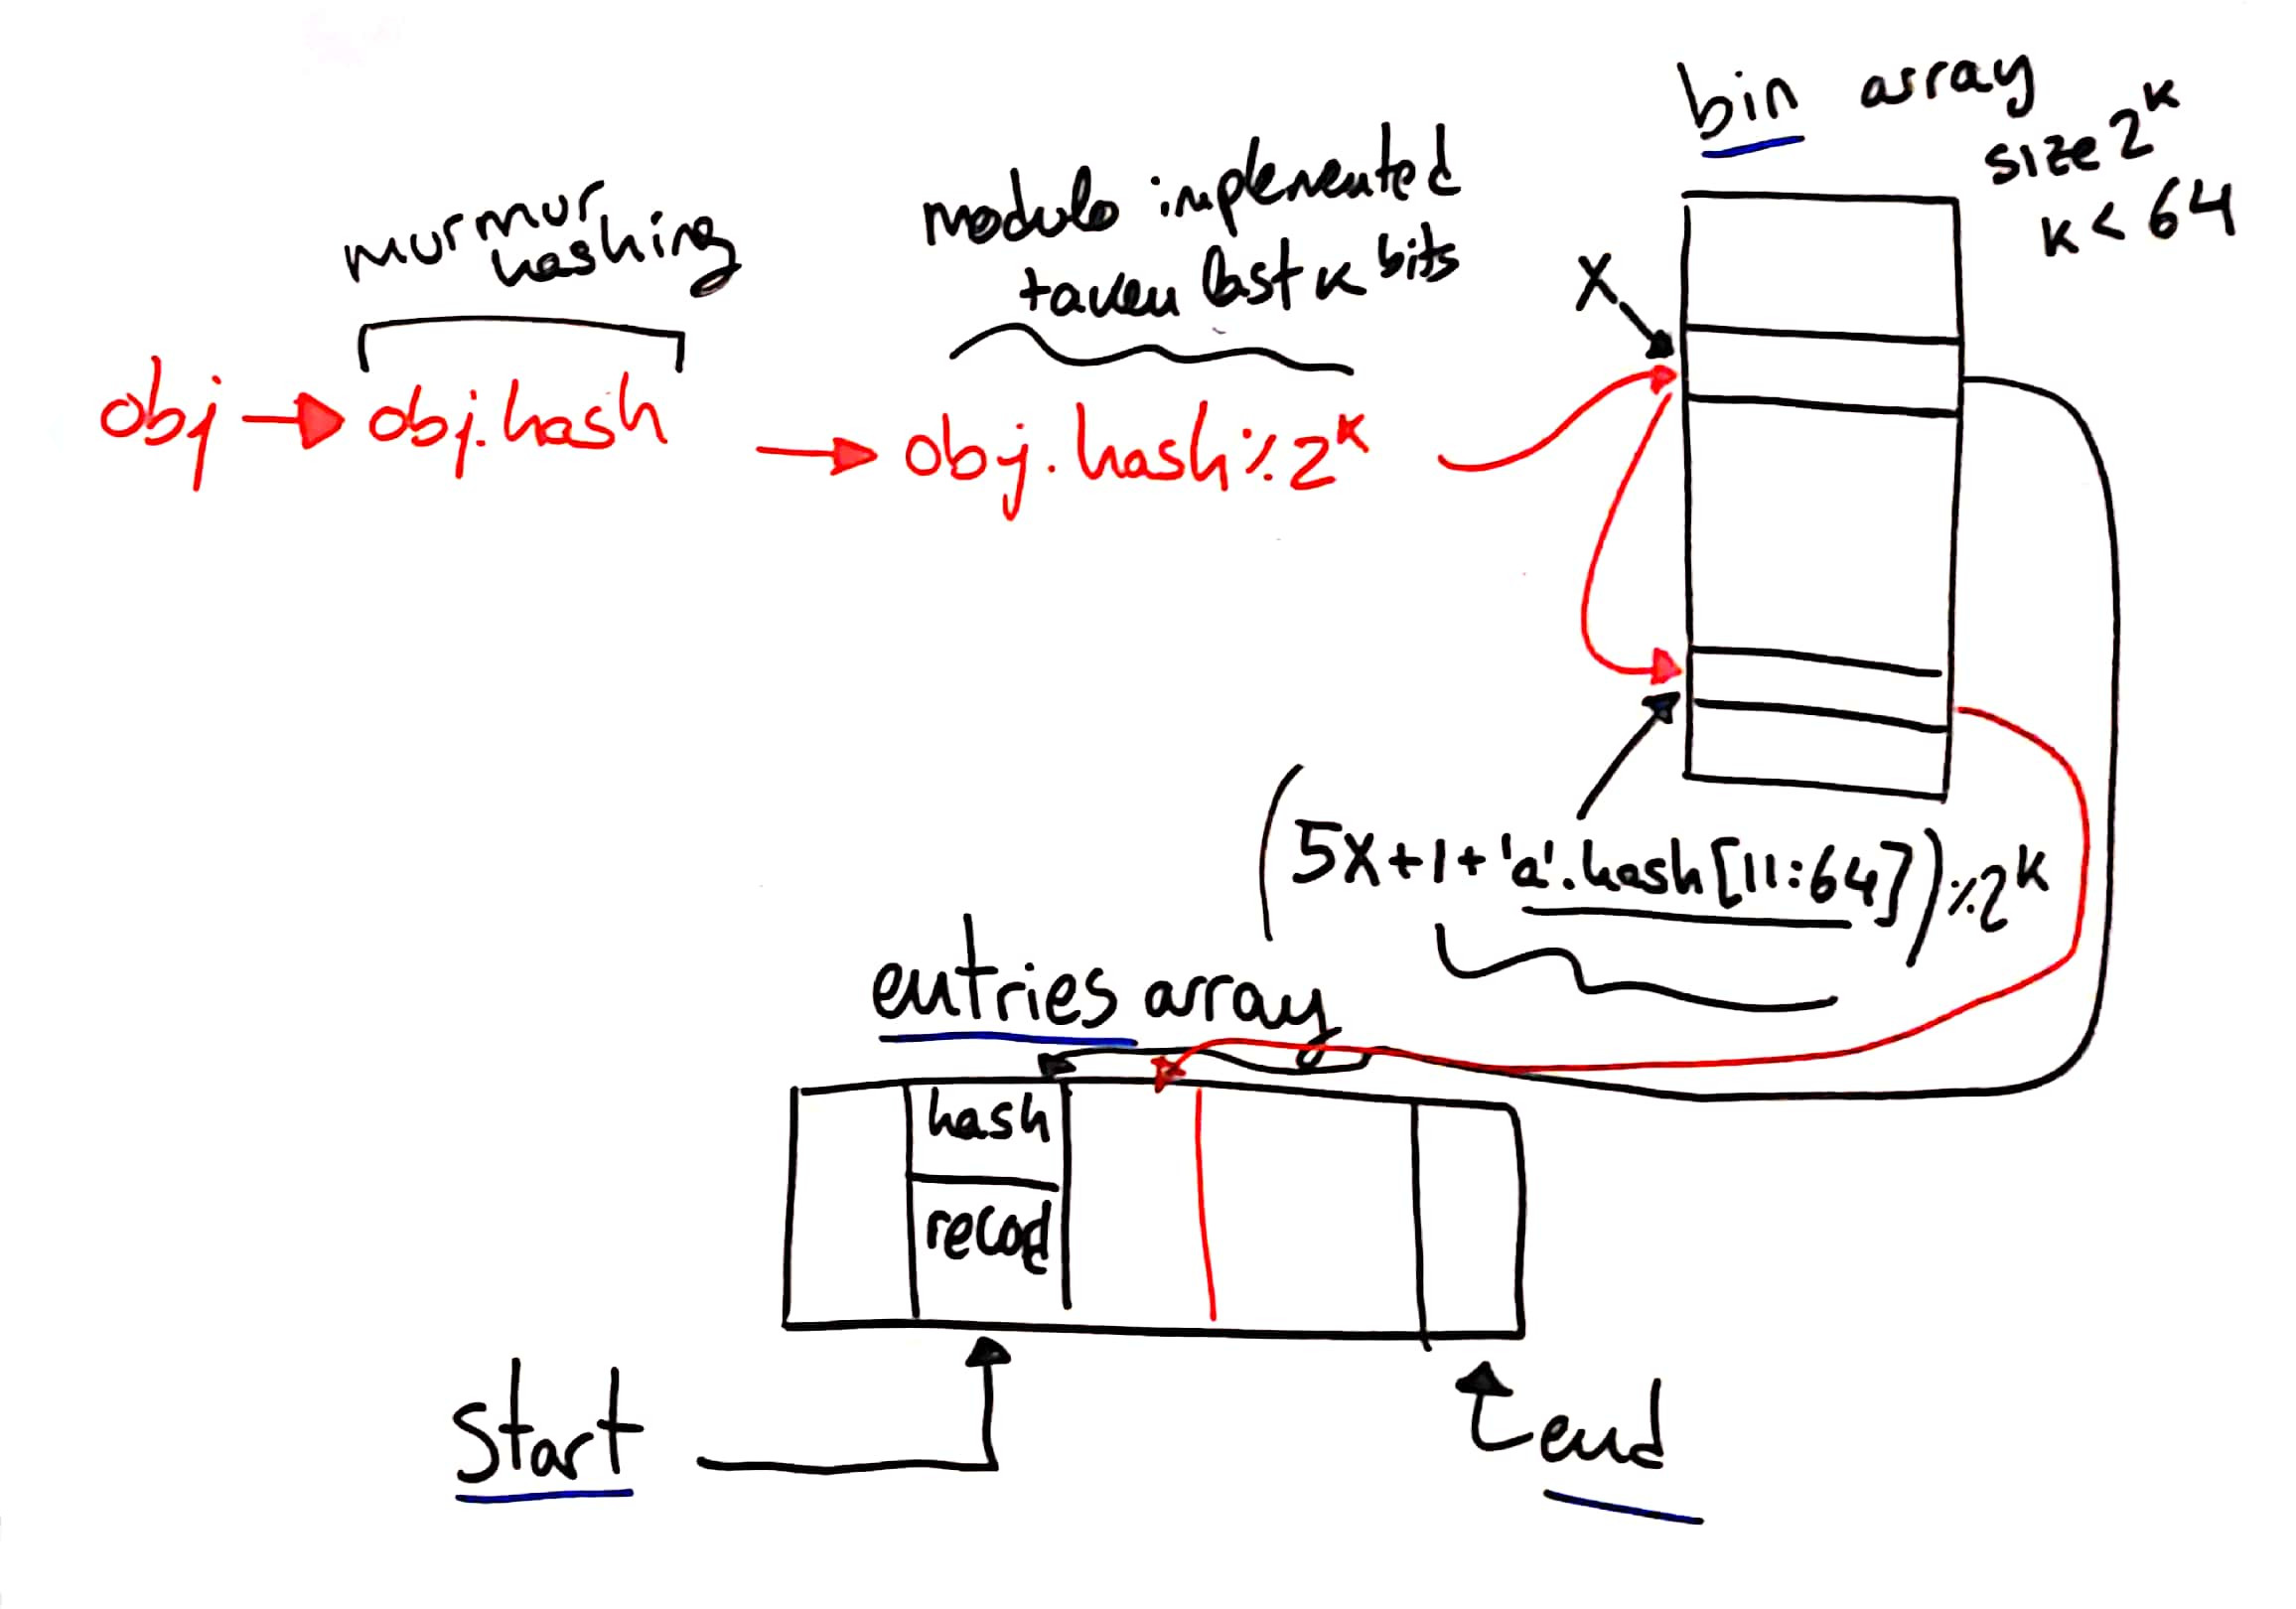 bin array
size 2^k
k < 64
murmur
hashing
modulo implemented
taken last k bits
x
obj → obj.hash → obj.hash % 2^k
(5x+1+'a'.hash[11:64]) % 2^k
entries array
hash
recod
start
end